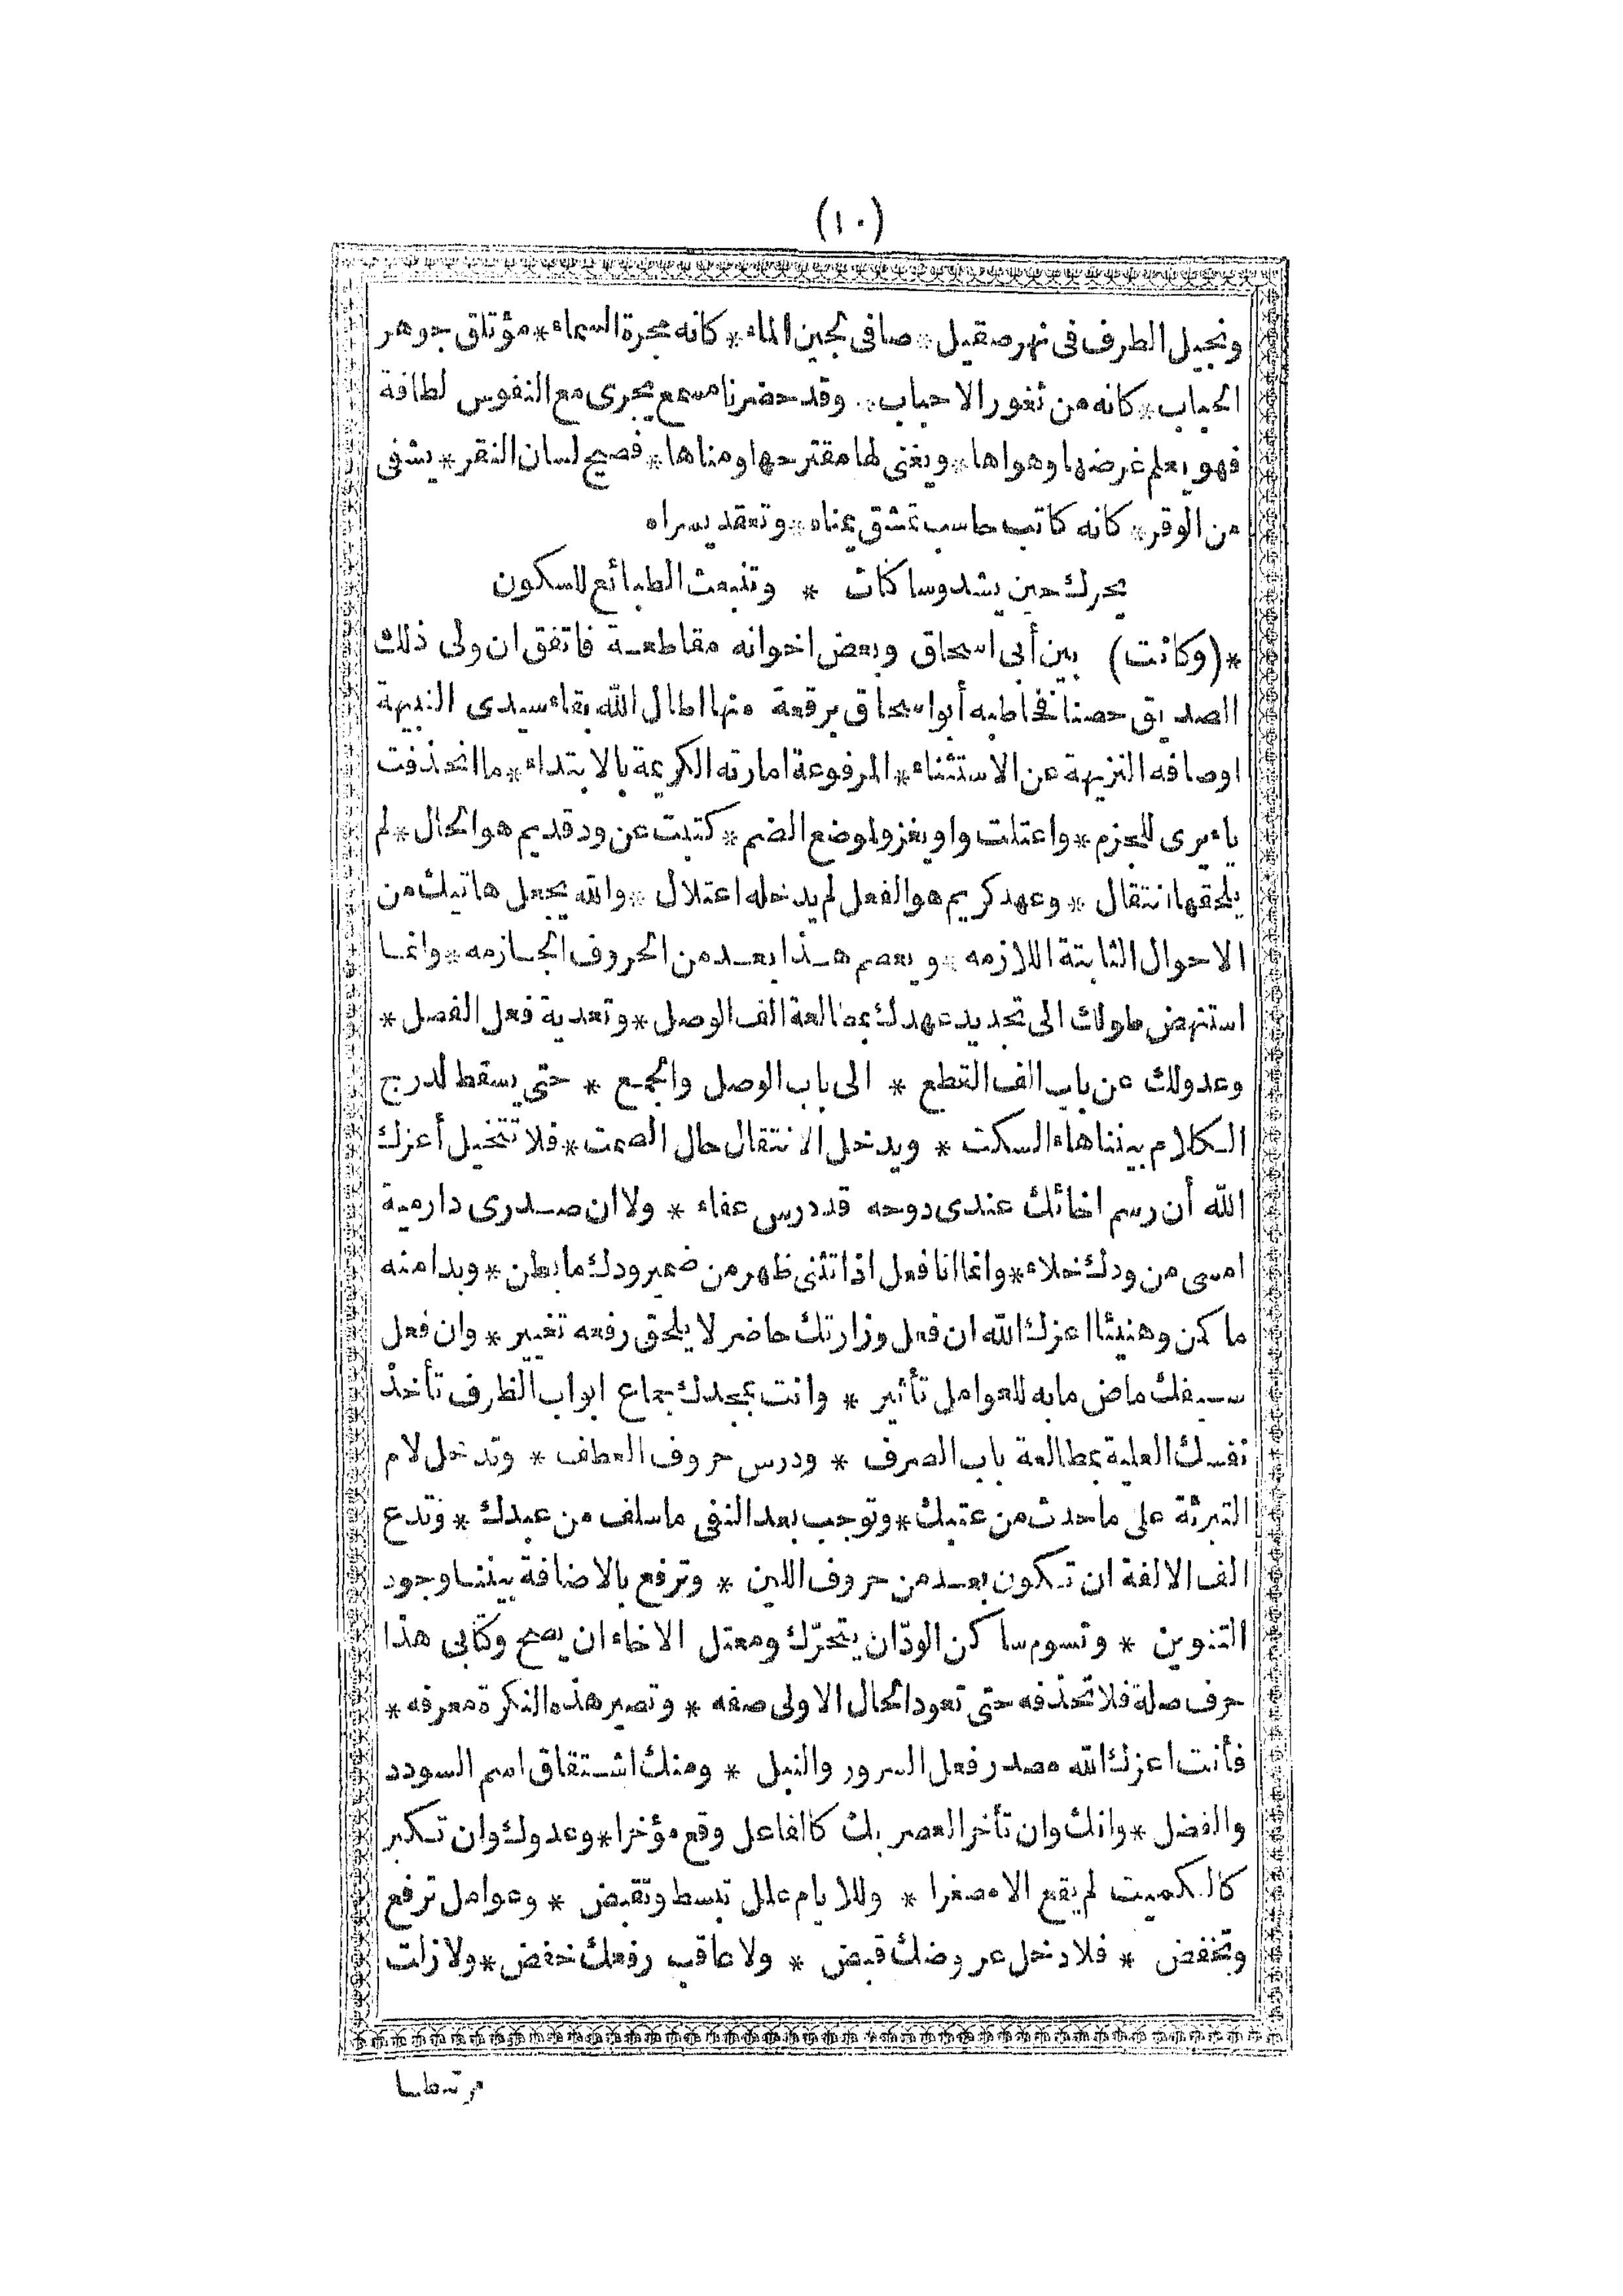 (١٠)
ونجيل الطرف فى نهر صقيل * صافى لجين الماء * كانه مجرة السماء * مؤتلق جوهر
الحباب * كانه من ثغور الاحباب * وقد حضرنا مسمع يجرى مع النفوس لطافة
فهو يعلم غرضها وهواها * ويغنى لها مقترحها ومناها * فصيح لسان النقر * يشفى
من الوقر * كانه كاتب حاسب تمشق يمناه * وتعقد يسراه
يحرك حين يشدو ساكنات * وتنبعث الطبائع للسكون
*(وكانت) بين أبى اسحاق وبعض اخوانه مقاطعة فاتفق ان ولى ذلك
الصديق حصنا فخاطبه أبو اسحاق برقعة منها اطال الله بقاء سيدى النبيهة
اوصافه النزيهة عن الاستثناء * المرفوعة امارته الكريمة بالابتداء * ما انحذفت
ياء يرى للجزم * واعتلت واو يغزو لموضع الضم * كتبت عن ود قديم هو الحال * لم
يلحقها انتقال * وعهد كريم هو الفعل لم يدخله اعتلال * والله يجعل هاتيك من
الاحوال الثابتة اللازمه * ويعصم هذا بعد من الحروف الجازمه * وانما
استنهض طولك الى تجديد عهدك بمطالعة الف الوصل * وتعدية فعل الفصل *
وعدولك عن باب الف القطع * الى باب الوصل والجمع * حتى يسقط لدرج
الكلام بيننا هاء السكت * ويدخل الانتقال حال الصمت * فلا تتخيل أعزك
الله أن رسم اخائك عندى دوحه قد درس عفاء * ولا ان صدرى دارمية
امسى من ودك خلاء * وانما انا فعل اذا تثنى ظهر من ضمير ودك ما بطن * وبدا منه
ما كمن وهنيئا اعزك الله ان فعل وزارتك حاضر لا يلحق رفعه تغيير * وان فعل
سيفك ماض مابه للعوامل تأثير * وانت بمجدك جماع ابواب الظرف تأخذ
نفسك العلية بمطالعة باب الصرف * ودرس حروف العطف * وتدخل لام
التبرئة على ما حدث من عتبك * وتوجب بعد النفى ما سلف من عبدك * وتدع
الف الالفة ان تكون بعد من حروف اللين * وترفع بالاضافة بيننا وجود
التنوين * وتسوم ساكن الودّ ان يتحرّك ومعتل الاخاء ان يصح وكتابى هذا
حرف صلة فلا تحذفه حتى تعود الحال الاولى صفه * وتصير هذه النكرة معرفه *
فأنت اعزك الله مصدر فعل السرور والنبل * ومنك اشتقاق اسم السودد
والفضل * وانك وان تأخر العصر بك كالفاعل وقع مؤخرا * وعدوك وان تكبر
كالكميت لم يقع الا مصغرا * وللايام علل تبسط وتقبض * وعوامل ترفع
وتخفض * فلا دخل عروضك قبض * ولا عاقب رفعك خفض * ولا زلت
مرتبطا